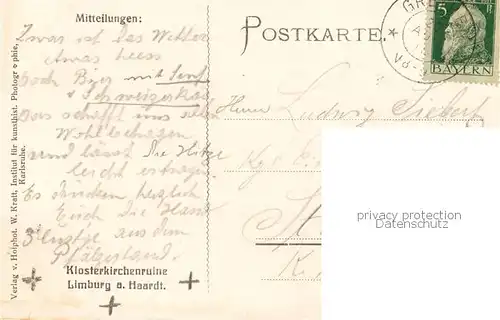 Mitteilungen:
POSTKARTE.
5
BAYERN
Zwar ist das Wetter
etwas heiss
doch Bier mit Senf
u Schweizerkäs
das schafft uns
Wohlbehagen
und lässt die Hitze
leicht ertragen.
Es drücken herzlich
Euch die Hand
aus dem
Pfälzerland.
Herrn Ludwig
Klosterkirchenruine
Limburg a. Haardt.
Verlag v. Hofphot. W. Kratt, Institut für kunsthist. Photographie,
Karlsruhe.
privacy protection
Datenschutz